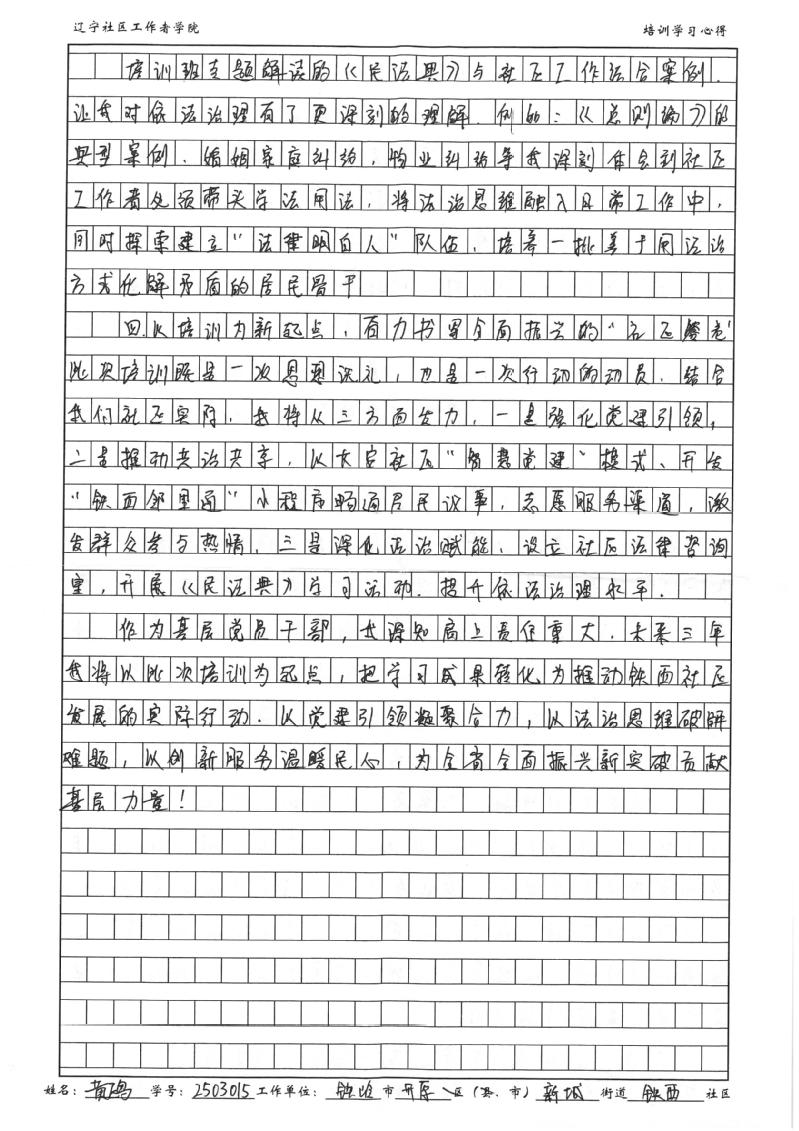 辽宁社区工作者学院 培训学习心得
培训班专题解读的《民法典》与社区工作法合案例.
让我对依法治理有了更深刻的理解.例的:《总则编》的
典型案例.婚姻家庭纠纷,物业纠纷等我深刻体会到社区
工作者必须带头学法用法,将法治思维融入日常工作中,
同时探索建立"法律明白人"队伍,培养一批善于用法治
方式化解矛盾的居民骨干
四.以培训为新起点,奋力书写全面振兴的"社区答卷"
此次培训既是一次思想洗礼,也是一次行动的动员.结合
我们社区实际.我将从三方面发力,一是强化党建引领,
二是推动共治共享,以大安社区"智慧党建"模式、开发
"铁西邻里通"小程序畅通居民议事,志愿服务渠道,激
发群众参与热情.三是深化法治赋能,设立社区法律咨询
室,开展《民法典》学习活动.提升依法治理水平.
作为基层党员干部,我深知肩上责任重大.未来三年
我将以此次培训为起点,把学习成果转化为推动铁西社区
发展的实际行动.以党建引领凝聚合力,以法治思维破解
难题,以创新服务温暖民心,为全省全面振兴新突破贡献
基层力量!
姓名: 学号:2503015 工作单位: 铁岭 市 开原 区(县、市) 新城 街道 铁西 社区